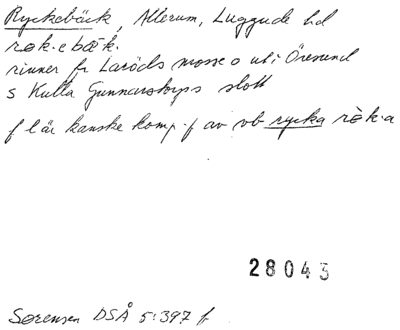 Ryckebäck, Allerum, Luggude hd
røk·e bæk·
rinner fr Laröds mosse o ut i Öresund
s Kulla Gunnarstorps slott
f l är kanske komp.f av vb rycka røk·a
28043
Sørensen DSÅ 5:397 f